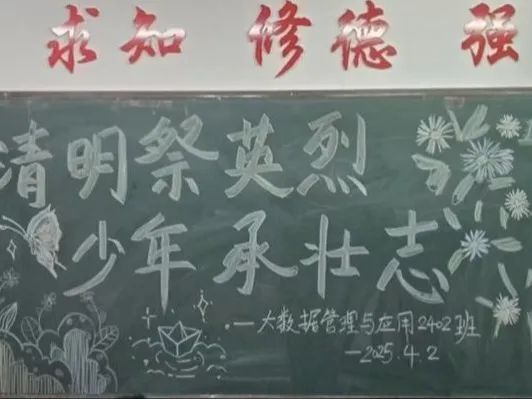 求知 修德 强
清明祭英烈
少年承壮志
—大数据管理与应用2402班
—2025.4.2